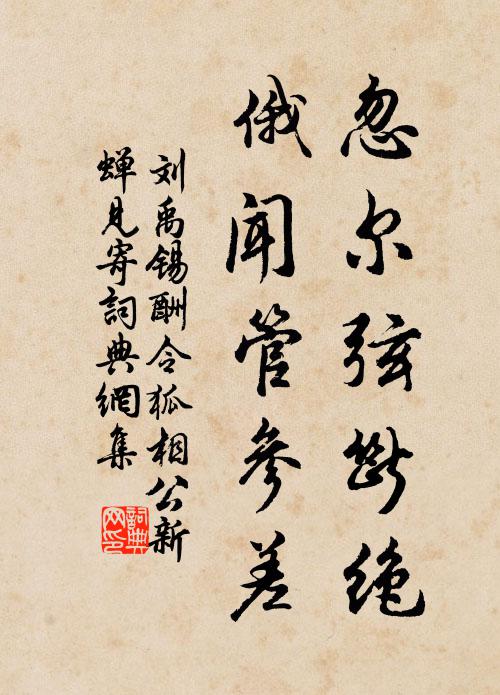 忽尔弦断绝
俄闻管参差
刘禹锡酬令狐相公新
蝉见寄詞典網集
詞典
网印